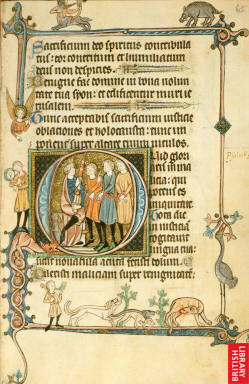 Sacrificium deo spiritus contribula
tus: cor contritum et humiliatum
deus non despicies.
Benigne fac domine in bona volun
tate tua syon: et edificentur muri ie
rusalem.
Tunc acceptabis sacrificium iusticie
oblationes et holocausta: tunc im
ponent super altare tuum vitulos.
Quid glori
aris in ma
licia: qui
potens es
iniquitate
Tota die
iniusticia
cogitavit
lingua tua
sicut novacula acuta fecisti dolum.
Dilexisti maliciam super benignitate:
BRITISH
LIBRARY